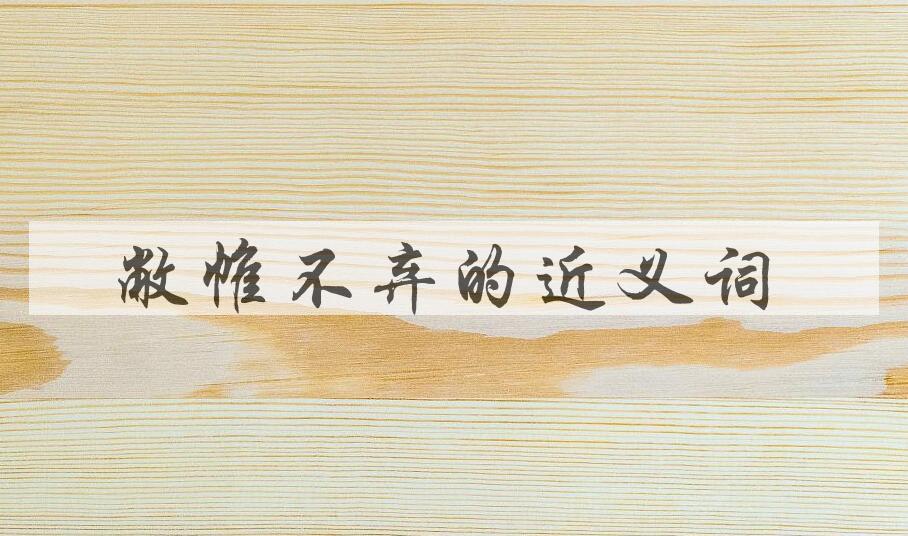 敝帷不弃的近义词